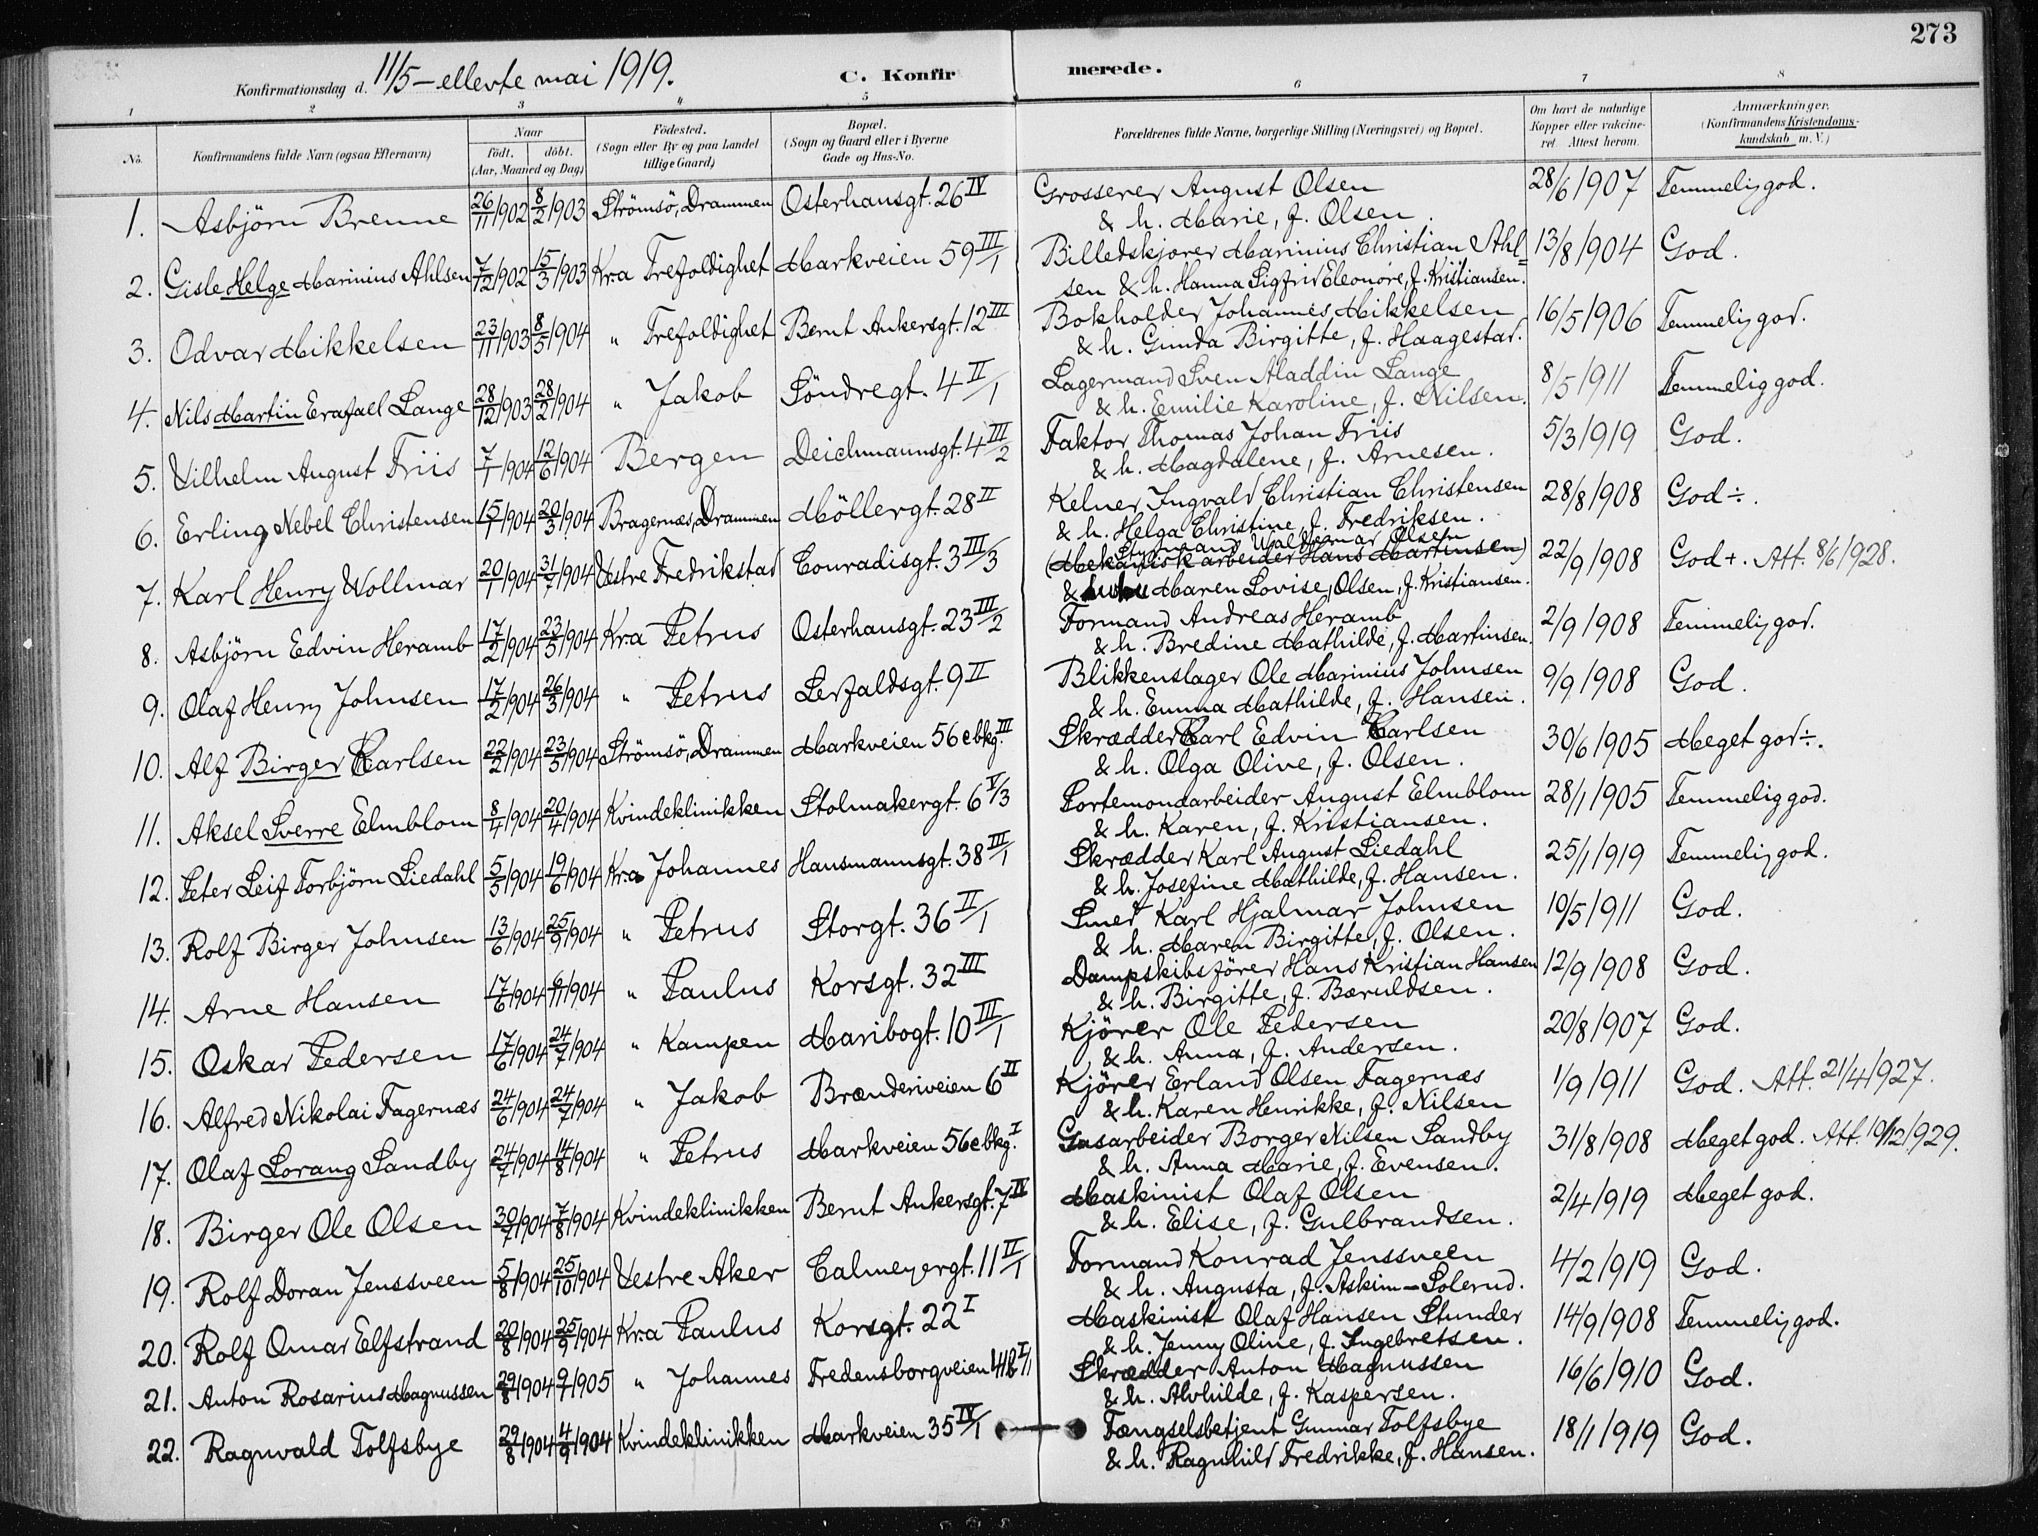 273
Konfirmationsdag d. 11/5 – ellevte mai 1919. C. Konfirmerede.
1 2 3 4 5 6 7 8
No. Konfirmandens fulde Navn (ogsaa Efternavn) Naar födt. döbt. (Aar, Maaned og Dag) Födested. (Sogn eller By og paa Landet tillige Gaard) Bopæl. (Sogn og Gaard eller i Byerne Gade og Hus-No. Forældrenes fulde Navne, borgerlige Stilling (Næringsvei) og Bopæl. Om havt de naturlige Kopper eller vakcineret. Attest herom. Anmærkninger. (Konfirmandens Kristendomskundskab m. V.)
1. Asbjörn Brenne 26/11 1902 8/2 1903 Strömsö, Drammen Osterhausgt. 26 IV Grosserer August Olsen 28/6 1907 Temmelig god.
& h. Marie, f. Olsen.
2. Gisle Helge Marinius Ahlsen 7/12 1902 15/3 1903 Kra Trefoldighet Markveien 59 III/1 Billedskjærer Marinius Christian Ahl= 13/8 1904 God.
sen & h. Hanna Sigfrid Eleonöre, f. Kristiansen.
3. Odvar Mikkelsen 23/11 1903 8/5 1904 " Trefoldighet Bernt Ankersgt. 12 III Bokholder Johannes Mikkelsen 16/5 1906 Temmelig god.
& h. Gunda Birgitte, f. Haagestad.
4. Nils Martin Erafael Lange 28/12 1903 28/2 1904 " Jakob Söndregt. 4 II/1 Lagermand Sven Aladdin Lange 8/5 1911 Temmelig god.
& h. Emilie Karoline, f. Nilsen.
5. Vilhelm August Friis 7/1 1904 12/6 1904 Bergen Deichmannsgt. 4 III/2 Faktor Thomas Johan Friis 5/3 1919 God.
& h. Magdalene, f. Arnesen.
6. Erling Nebel Christensen 15/1 1904 20/3 1904 Bragernæs, Drammen Möllergt. 28 II Kelner Ingvald Christian Christensen 28/8 1908 God ÷.
& h. Helga Christine, f. Fredriksen.
Styrmand Waldemar Olsen
7. Karl Henry Wollmar 20/1 1904 31/7 1904 Vestre Fredrikstad Conradisgt. 3 III/3 (Mekanisk arbeider Hans Martinsen) 22/9 1908 God +. Att. 8/6 1928.
& Maren Lovise, Olsen, f. Kristiansen.
8. Asbjörn Edvin Heramb 17/2 1904 23/5 1904 Kra Petrus Osterhausgt. 23 III/2 Formand Andreas Heramb 2/9 1908 Temmelig god.
& h. Bredine Mathilde, f. Martinsen.
9. Olaf Henry Johnsen 17/2 1904 26/3 1904 " Petrus Lerfaldsgt. 9 II Blikkenslager Ole Marinius Johnsen 9/9 1908 God.
& h. Emma Mathilde, f. Hansen.
10. Alf Birger Carlsen 22/2 1904 23/5 1904 Strömsö, Drammen Markveien 56 c bkg. III Skrædder Carl Edvin Carlsen 30/6 1905 Meget god ÷.
& h. Olga Olive, f. Olsen.
11. Aksel Sverre Elmblom 8/4 1904 20/4 1904 Kvindeklinikken Stolmakergt. 6 V/3 Portemonarbeider August Elmblom 28/1 1905 Temmelig god.
& h. Karen, f. Kristiansen.
12. Peter Leif Torbjörn Liedahl 5/5 1904 19/6 1904 Kra Johannes Hausmannsgt. 38 III/1 Skrædder Karl August Liedahl 25/1 1919 Temmelig god.
& h. Josefine Mathilde, f. Hansen.
13. Rolf Birger Johnsen 13/6 1904 25/9 1904 " Petrus Storgt. 36 II/1 Smed Karl Hjalmar Johnsen 10/5 1911 God.
& h. Maren Birgitte, f. Olsen.
14. Arne Hansen 17/6 1904 6/11 1904 " Paulus Korsgt. 32 III Dampskibsförer Hans Kristian Hansen 12/9 1908 God.
& h. Birgitte, f. Bæruldsen.
15. Oskar Pedersen 17/6 1904 24/7 1904 " Kampen Maribogt. 10 III/1 Kjörer Ole Pedersen 20/8 1907 God.
& h. Anna, f. Andersen.
16. Alfred Nikolai Fagernæs 24/6 1904 24/7 1904 " Jakob Brænderiveien 6 II Kjörer Erland Olsen Fagernæs 1/9 1911 God. Att. 21/4 1927.
& h. Karen Henrikke, f. Nilsen
17. Olaf Lorang Sandby 24/7 1904 14/8 1904 " Petrus Markveien 56 c bkg. I Gasarbeider Borger Nilsen Sandby 31/8 1908 Meget god. Att. 10/12 1929.
& h. Anna Marie, f. Evensen.
18. Birger Ole Olsen 30/7 1904 7/8 1904 Kvindeklinikken Bernt Ankersgt. 7 IV Maskinist Olaf Olsen 2/4 1919 Meget god.
& h. Elise, f. Gulbrandsen.
19. Rolf Doran Jenssveen 5/8 1904 25/10 1904 Vestre Aker Calmeyergt. 11 II/1 Formand Konrad Jenssveen 4/2 1919 God.
& h. Augusta, f. Askim – Solerud.
20. Rolf Omar Elfstrand 20/8 1904 25/9 1904 Kra Paulus Korsgt. 22 I Maskinist Olaf Hansen Stunder 14/9 1908 Temmelig god.
& h. Jenny Oline, f. Ingebretsen.
21. Anton Rosarius Magnussen 29/8 1904 9/7 1905 " Johannes Fredensborgveien 41 b I/1 Skrædder Anton Magnussen 16/6 1910 God.
& h. Alvhilde, f. Kaspersen.
22. Ragnvald Tolfsbye 29/8 1904 4/9 1904 Kvindeklinikken Markveien 35 IV/1 Fængselsbetjent Gunnar Tolfsbye 18/1 1919 God.
& h. Ragnhild Fredrikke, f. Hansen.